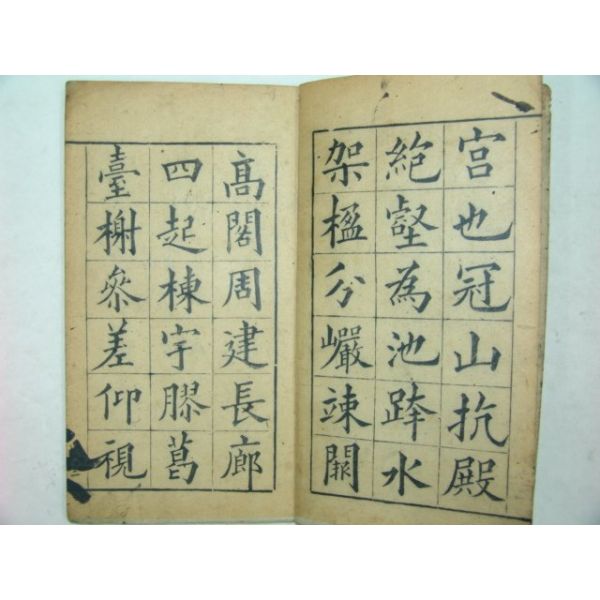 宫也冠山抗殿
絶壑為池跨水
架楹分巖竦闕
高閣周建長廊
四起棟宇膠葛
臺榭參差仰視